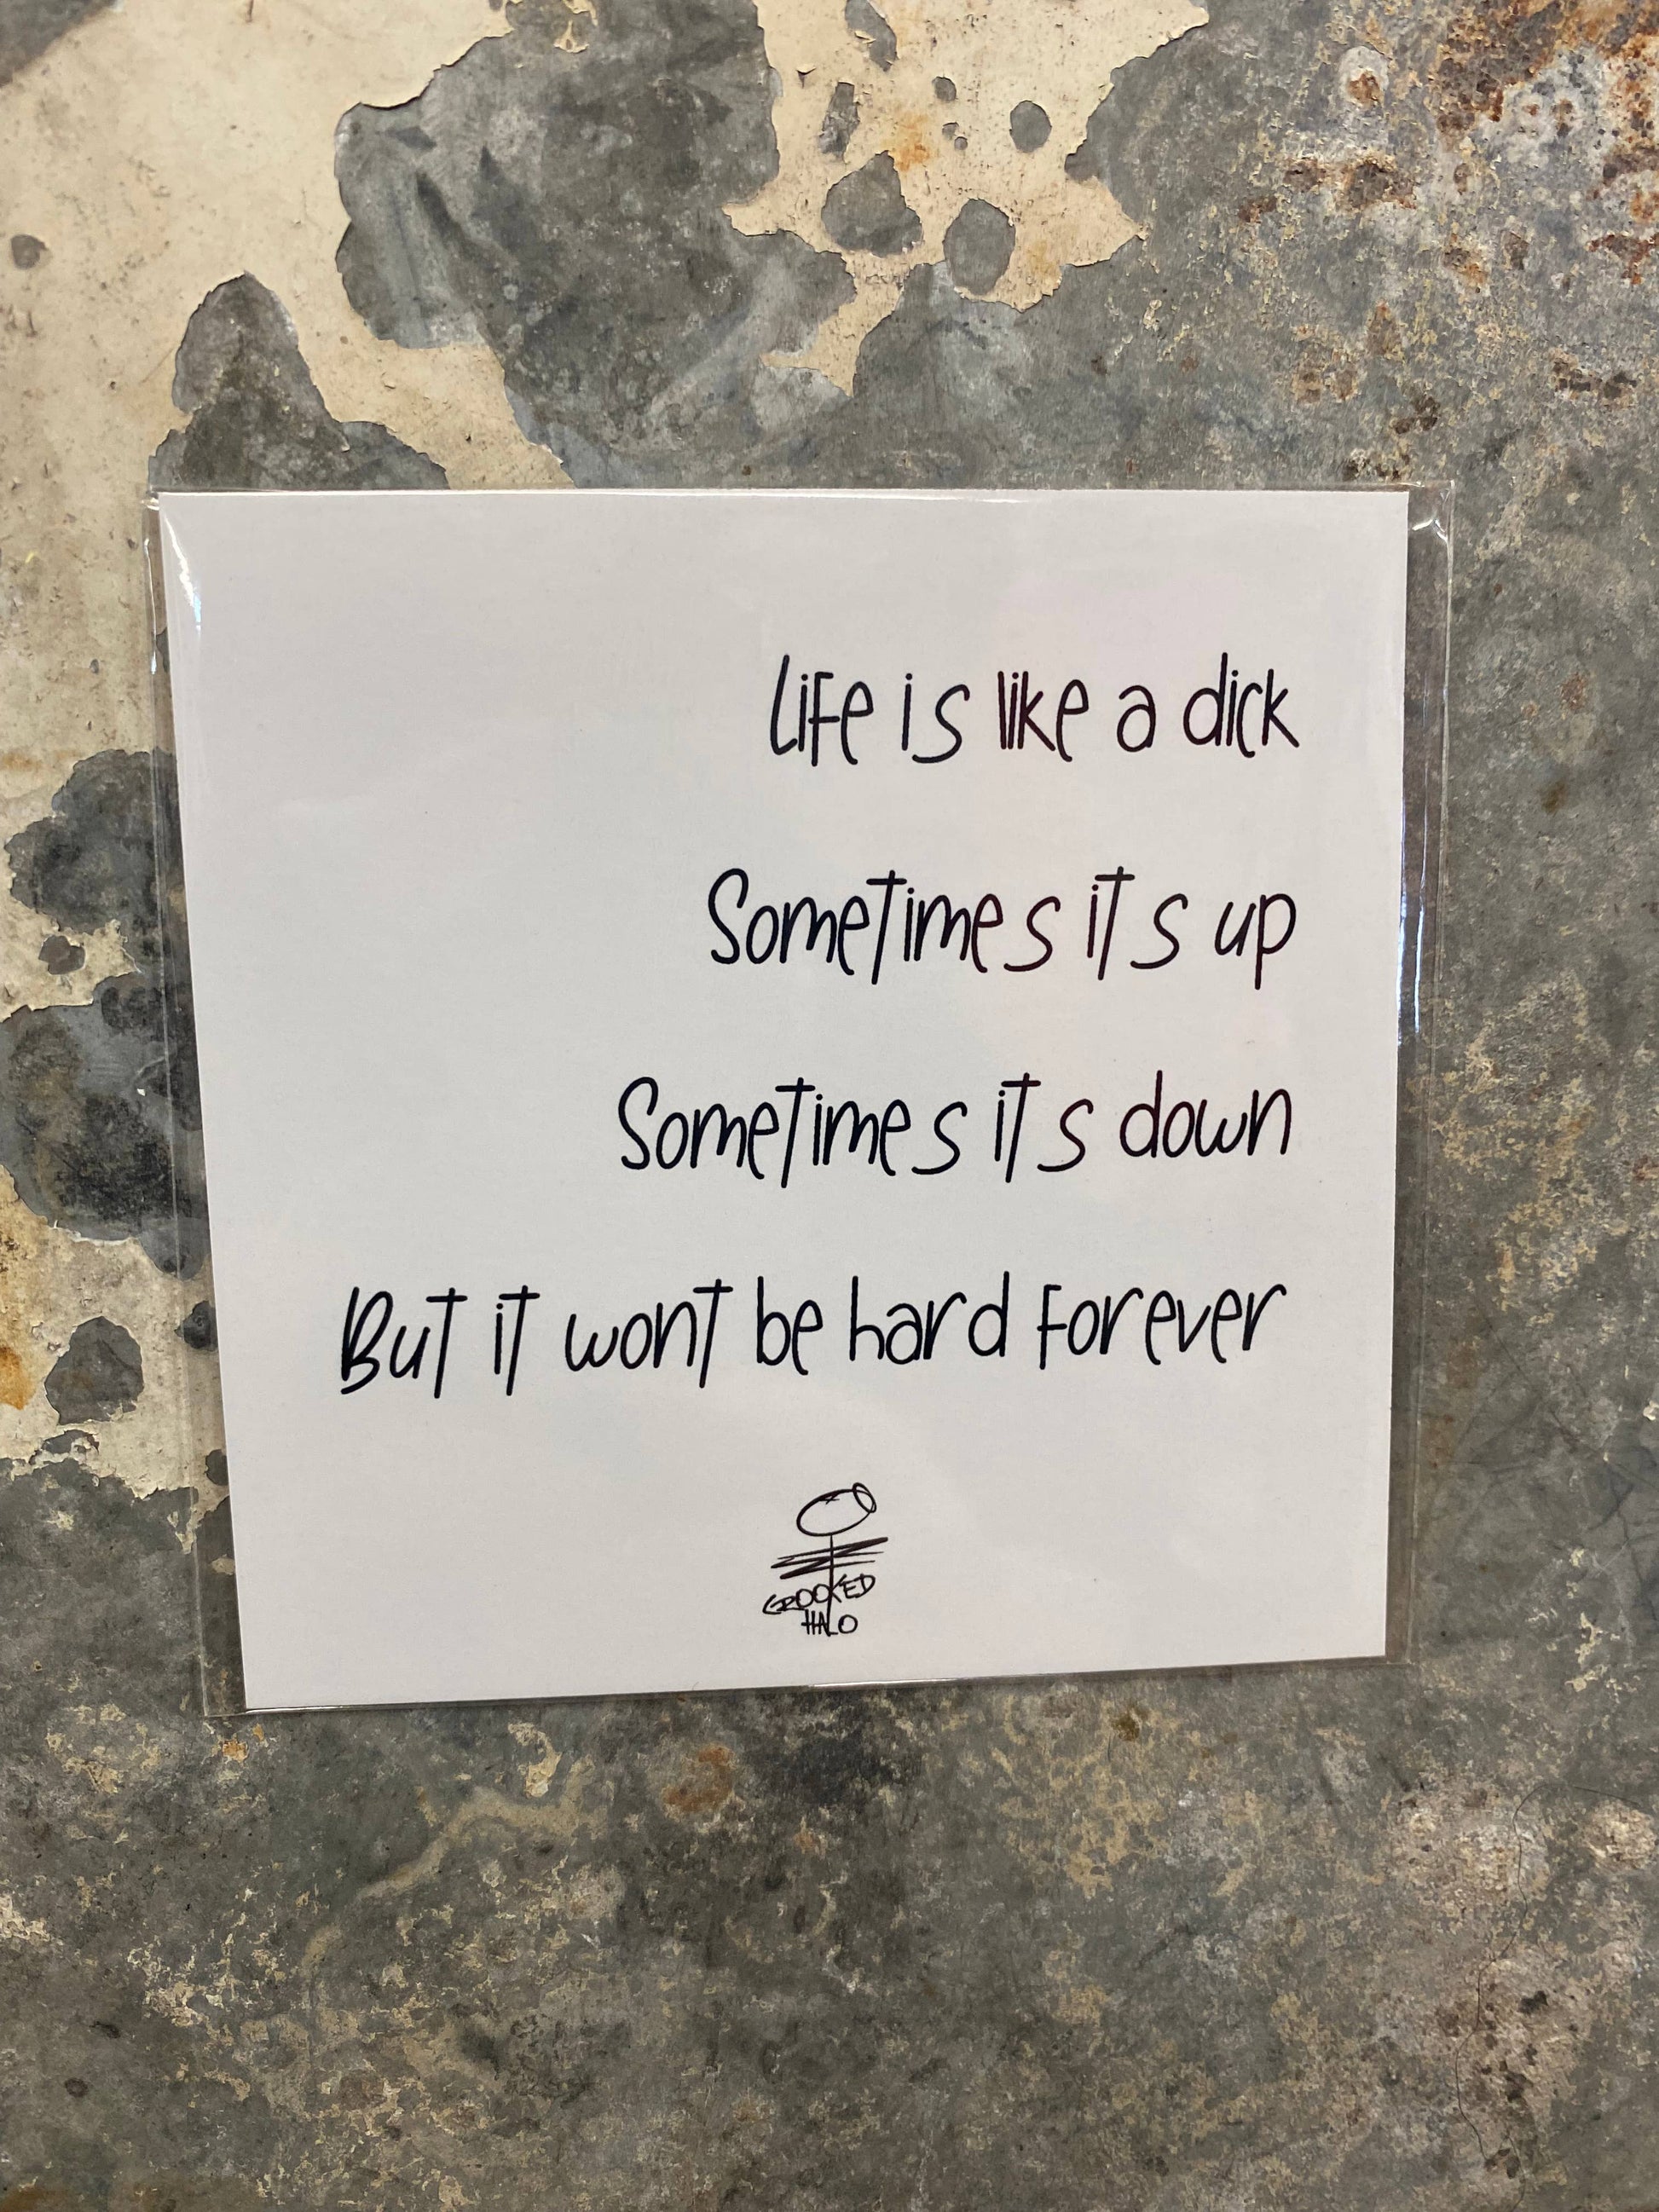 Life is like a dick
Sometimes its up
Sometimes its down
But it wont be hard forever
CROOKED
HALO